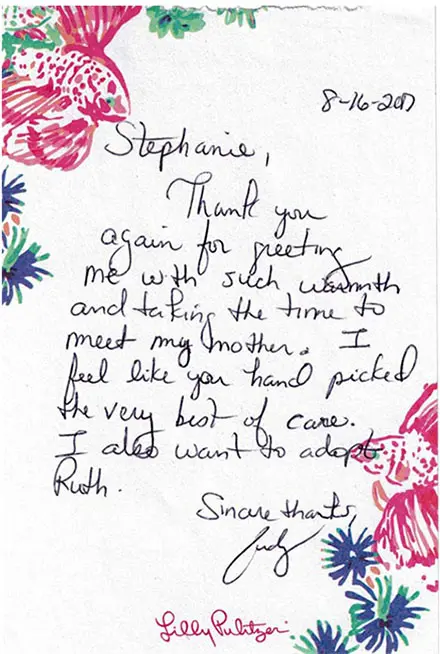 8-16-2017
Stephanie,
Thank you
again for greeting
me with such warmth
and taking the time to
meet my mother. I
feel like you hand picked
the very best of care.
I also want to adopt
Ruth.
Sincere thanks,
Judy
Lilly Pulitzer